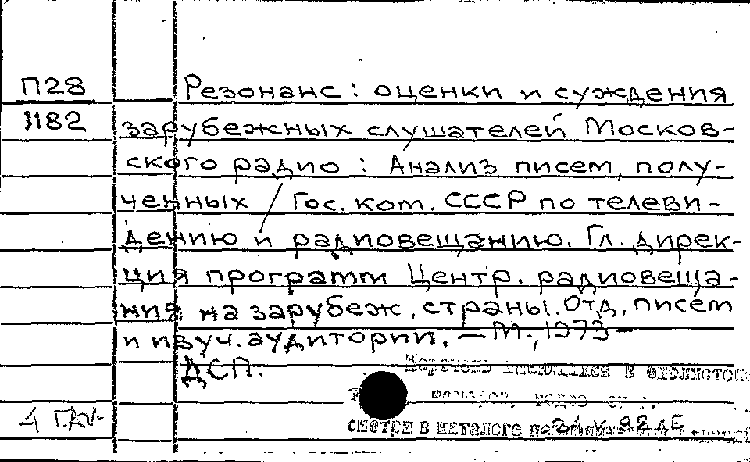 П28 Резонанс: оценки и суждения
1182 зарубежных слушателей Москов-
ского радио: Анализ писем, полу-
ченных / Гос. ком. СССР по телеви-
дению и радиовещанию. Гл. дирек-
ция программ Центр. радиовеща-
ния на зарубеж. страны. Отд. писем
и изуч. аудитории. — М., 1973—
ДСП.
в библиотек
смотри в каталоге